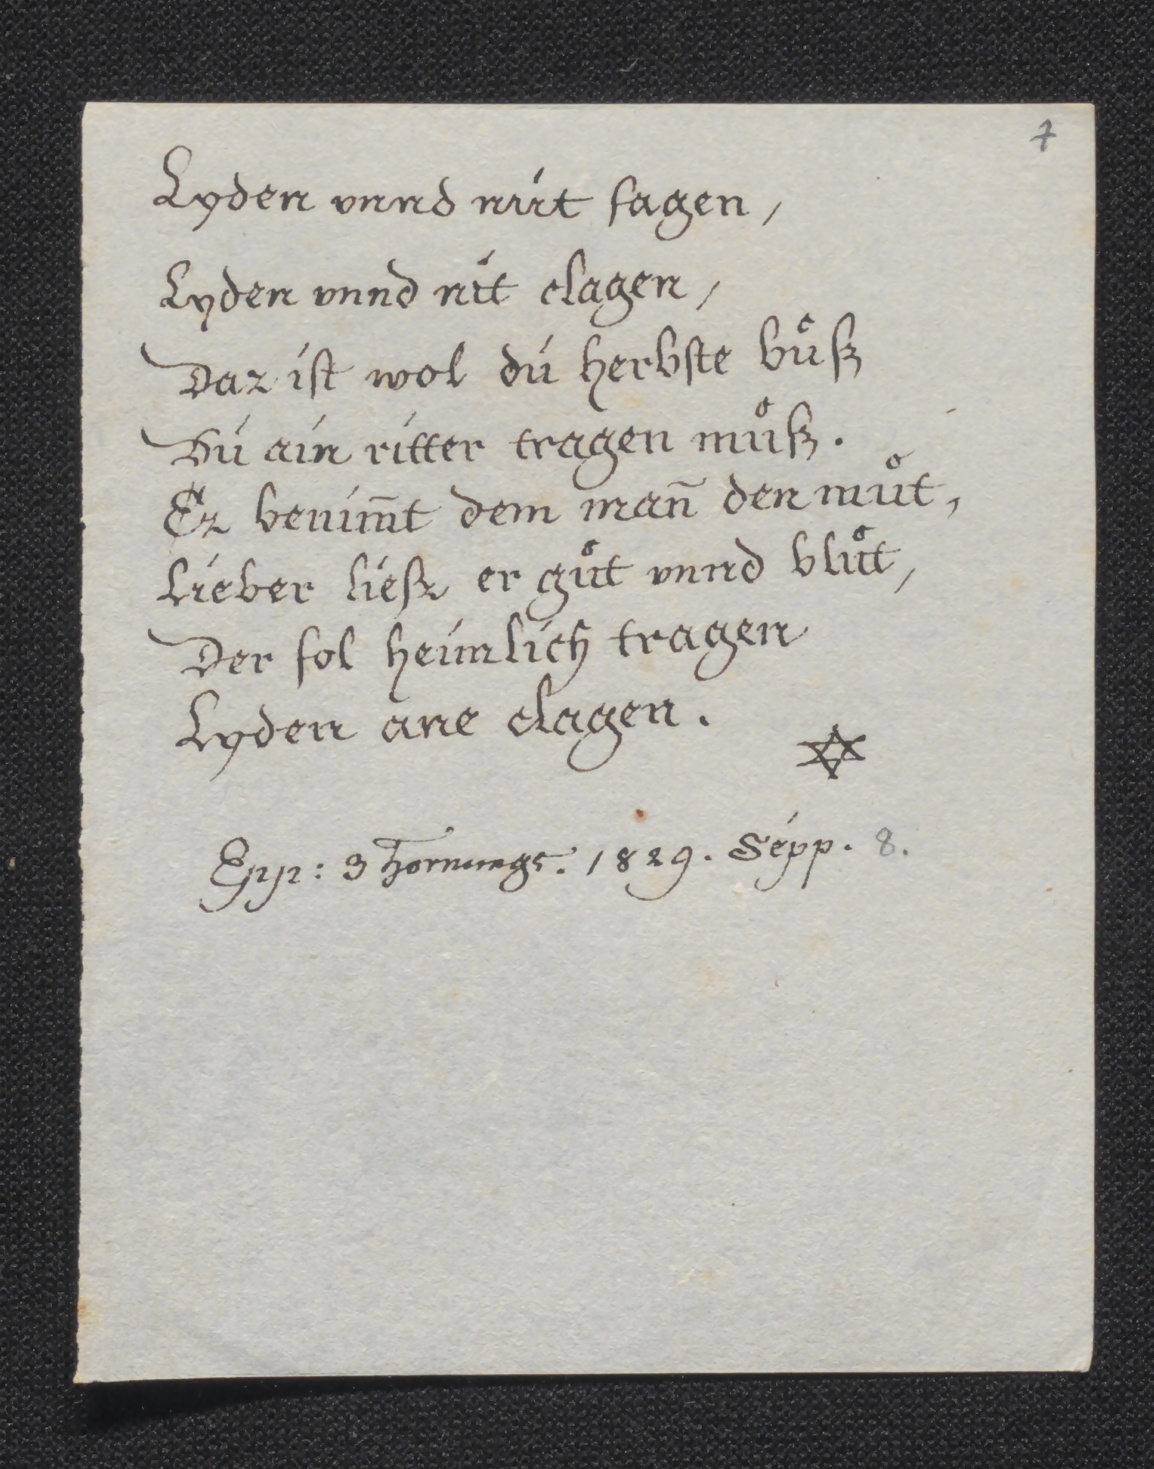 7
Lyden vnnd nút sagen,
Lyden vnnd nút clagen,
Daz ist wol dú herbste bůß
Dú ain ritter tragen můß.
Ez benim̄t dem man̄ den můt,
Lieber ließ er gůt vnnd blůt,
Der sol heimlich tragen
Lyden ane clagen.
Epp: 3 Hornungs. 1829. Sepp. 8.